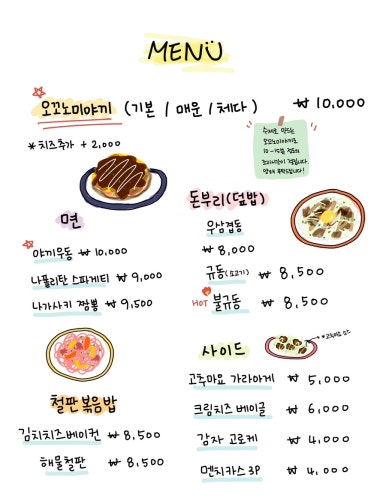 MENU
오꼬노미야끼 (기본 / 매운 / 체다) ₩ 10,000
*치즈추가 + 2,000
수제로 만드는
오꼬노미야끼로
10~15분 정도의
조리시간이 걸립니다.
양해 부탁드립니다!
면
야끼우동 ₩ 10,000
나폴리탄 스파게티 ₩ 9,000
나가사키 짬뽕 ₩ 9,500
돈부리(덮밥)
우삼겹동
₩ 8,000
규동(소고기) ₩ 8,500
HOT 불규동 ₩ 8,500
철판볶음밥
김치치즈베이컨 ₩ 8,500
해물철판 ₩ 8,500
사이드
고추마요 가라아게 ₩ 5,000
크림치즈 베이글 ₩ 6,000
감자 고로케 ₩ 4,000
멘치카츠 3P ₩ 4,000